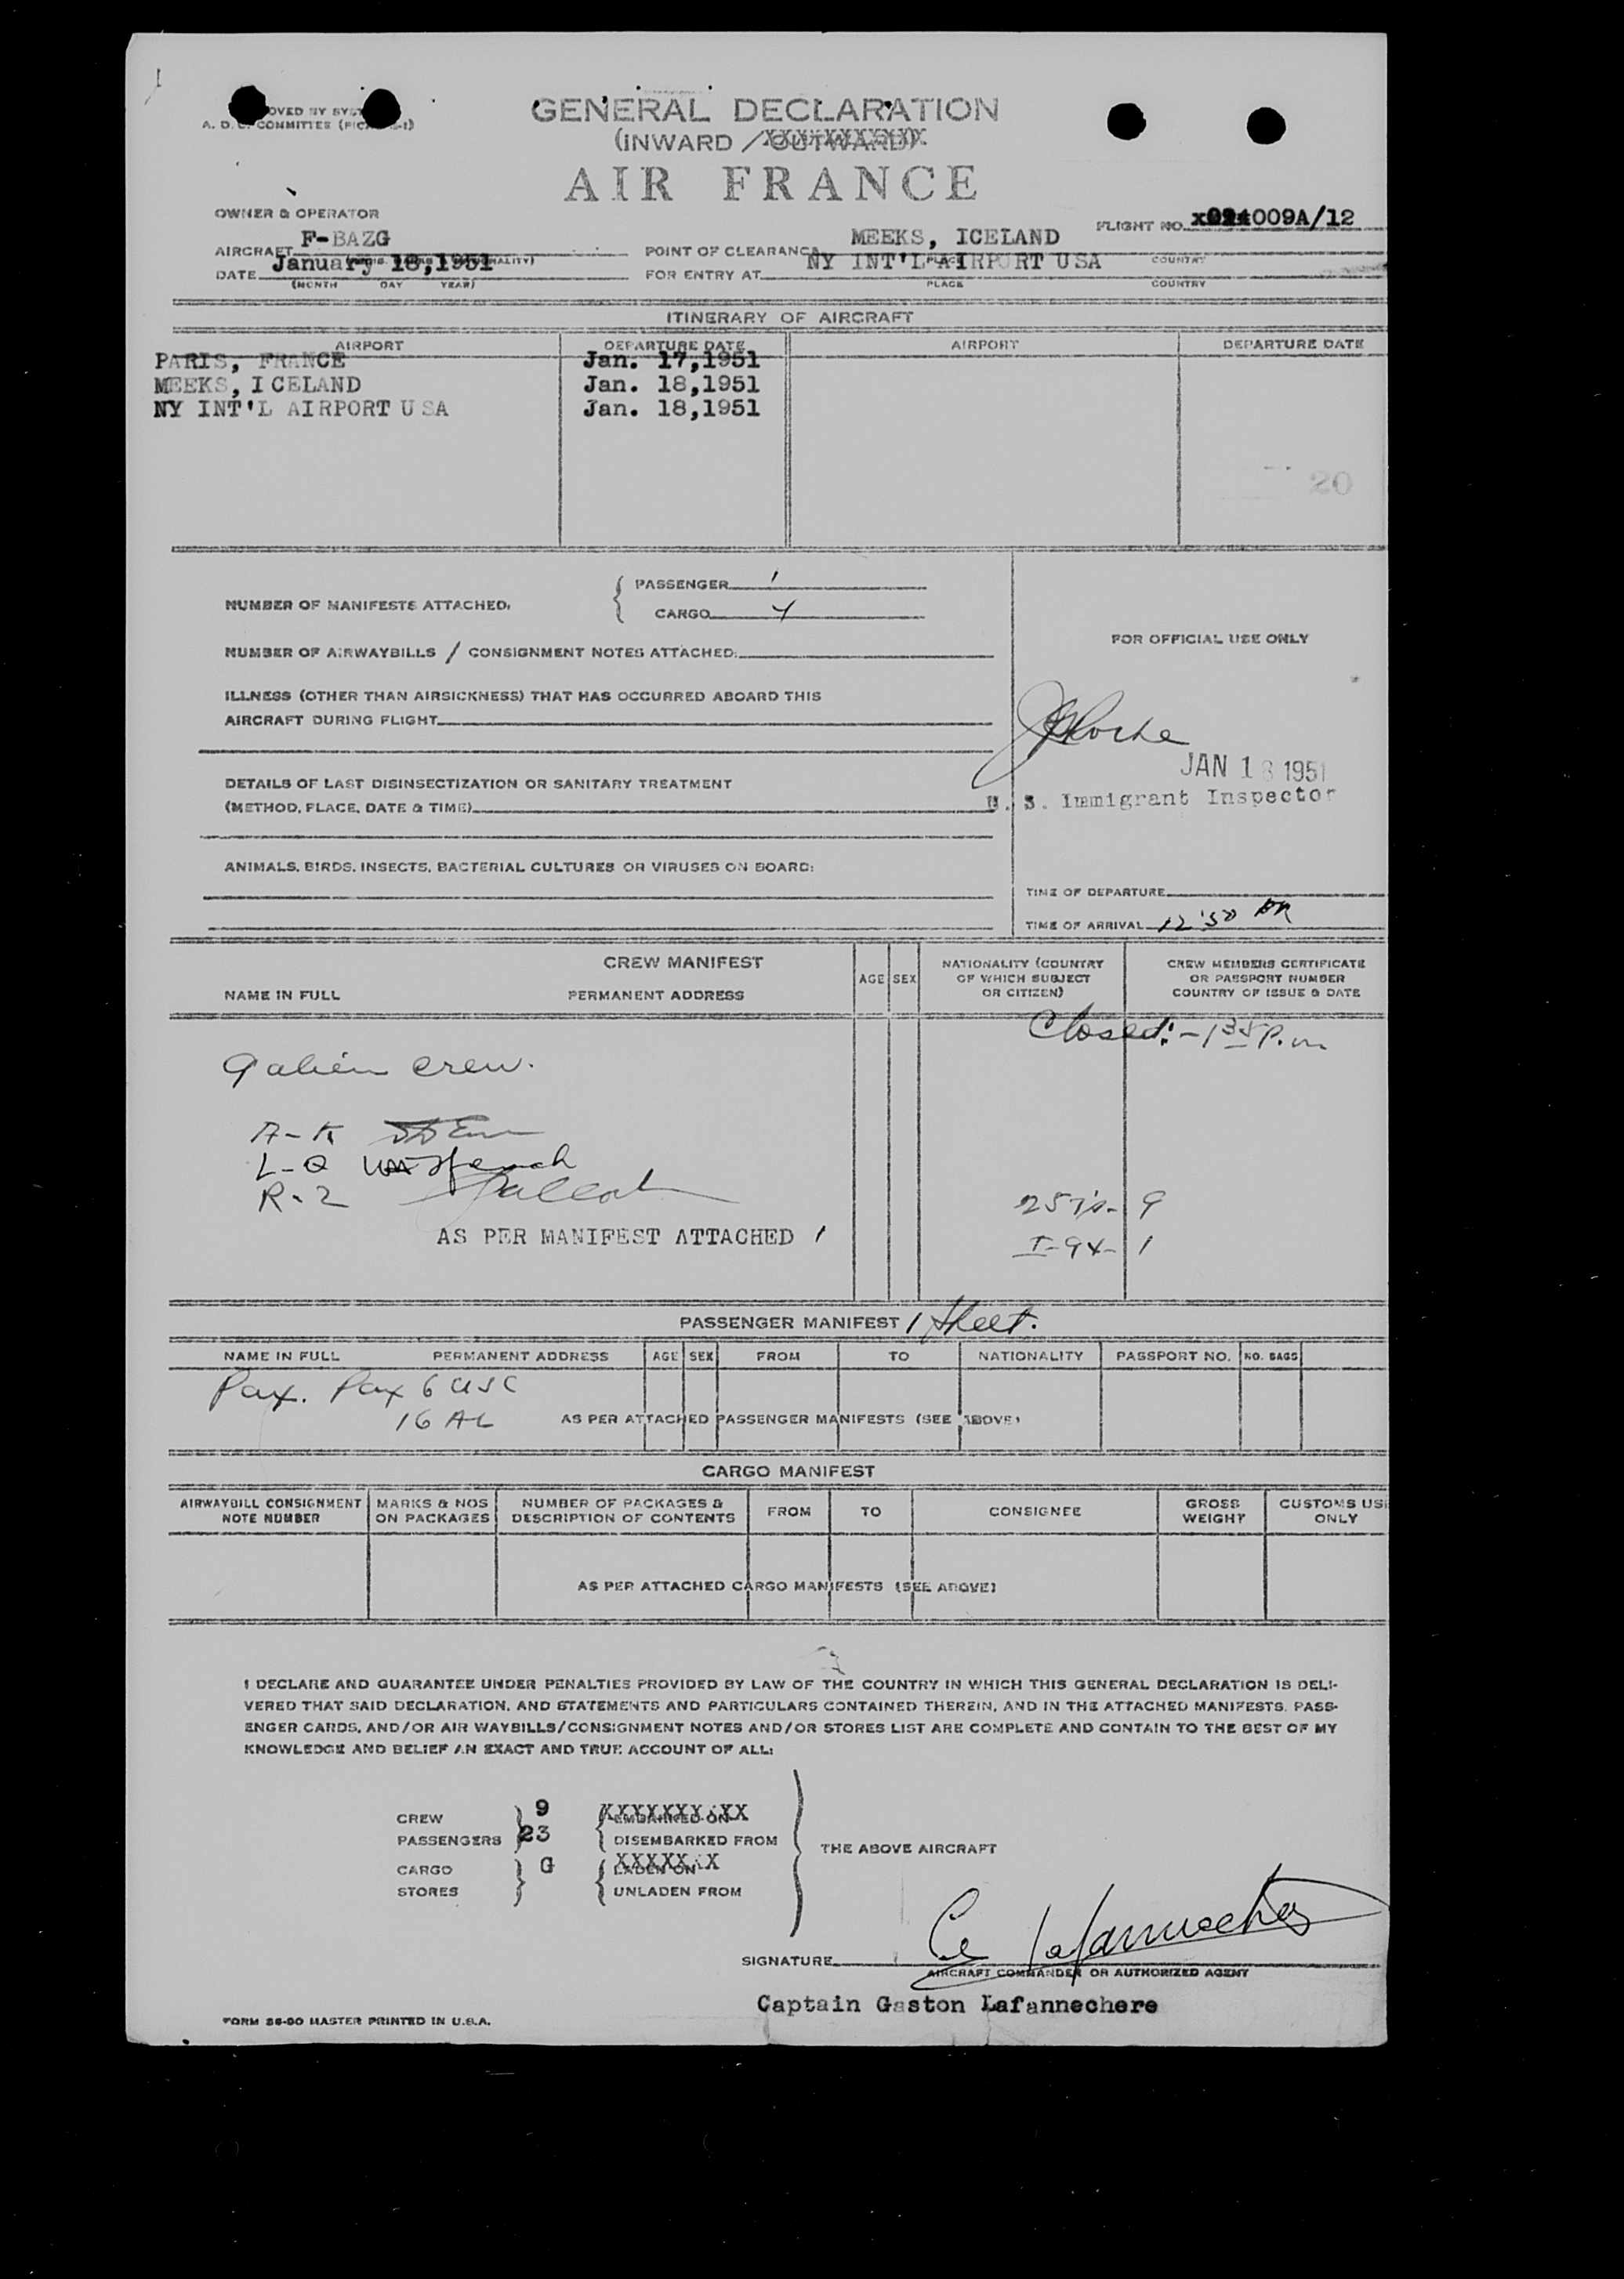 GENERAL DECLARATION
A. D. C. COMMITTEE
(INWARD / OUTWARD)
AIR FRANCE
OWNER & OPERATOR
FLIGHT NO. 009A/12
AIRCRAFT F-BAZG
POINT OF CLEARANCE MEEKS, ICELAND
PLACE COUNTRY
DATE January 18,1951
(MONTH DAY YEAR)
FOR ENTRY AT NY INT'L AIRPORT USA
PLACE COUNTRY
ITINERARY OF AIRCRAFT
AIRPORT DEPARTURE DATE AIRPORT DEPARTURE DATE
PARIS, FRANCE Jan. 17,1951
MEEKS, ICELAND Jan. 18,1951
NY INT'L AIRPORT USA Jan. 18,1951
20
NUMBER OF MANIFESTS ATTACHED.
PASSENGER 1
CARGO
FOR OFFICIAL USE ONLY
NUMBER OF AIRWAYBILLS / CONSIGNMENT NOTES ATTACHED:
ILLNESS (OTHER THAN AIRSICKNESS) THAT HAS OCCURRED ABOARD THIS
AIRCRAFT DURING FLIGHT
JAN 18 1951
U. S. Immigrant Inspector
DETAILS OF LAST DISINSECTIZATION OR SANITARY TREATMENT
(METHOD, PLACE, DATE & TIME)
ANIMALS, BIRDS, INSECTS, BACTERIAL CULTURES OR VIRUSES ON BOARD:
TIME OF DEPARTURE
TIME OF ARRIVAL 12:50 PM
CREW MANIFEST
NAME IN FULL PERMANENT ADDRESS
AGE SEX
NATIONALITY (COUNTRY
OF WHICH SUBJECT
OR CITIZEN)
CREW MEMBERS CERTIFICATE
OR PASSPORT NUMBER
COUNTRY OF ISSUE & DATE
Closed:- 1 35 P.m
9 alien crew.
A-K
L-Q
R-Z
257's- 9
AS PER MANIFEST ATTACHED 1
I-94- 1
PASSENGER MANIFEST 1 Sheet.
NAME IN FULL PERMANENT ADDRESS AGE SEX FROM TO NATIONALITY PASSPORT NO. NO. BAGS
Pax. Pax 6 USC
16 AL
AS PER ATTACHED PASSENGER MANIFESTS (SEE ABOVE)
CARGO MANIFEST
AIRWAYBILL CONSIGNMENT
NOTE NUMBER
MARKS & NOS
ON PACKAGES
NUMBER OF PACKAGES &
DESCRIPTION OF CONTENTS
FROM TO CONSIGNEE
GROSS
WEIGHT
CUSTOMS USE
ONLY
AS PER ATTACHED CARGO MANIFESTS (SEE ABOVE)
I DECLARE AND GUARANTEE UNDER PENALTIES PROVIDED BY LAW OF THE COUNTRY IN WHICH THIS GENERAL DECLARATION IS DELI-
VERED THAT SAID DECLARATION, AND STATEMENTS AND PARTICULARS CONTAINED THEREIN, AND IN THE ATTACHED MANIFESTS, PASS-
ENGER CARDS, AND/OR AIR WAYBILLS/CONSIGNMENT NOTES AND/OR STORES LIST ARE COMPLETE AND CONTAIN TO THE BEST OF MY
KNOWLEDGE AND BELIEF AN EXACT AND TRUE ACCOUNT OF ALL:
CREW 9 EMBARKED ON
PASSENGERS 23 DISEMBARKED FROM
THE ABOVE AIRCRAFT
CARGO G LADEN ON
STORES UNLADEN FROM
SIGNATURE
AIRCRAFT COMMANDER OR AUTHORIZED AGENT
Captain Gaston Lafannechere
FORM 86-90 MASTER PRINTED IN U.S.A.